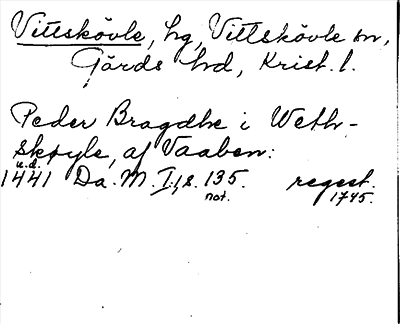 Vittskövle, hg, Vittskövle sn,
Gärds hd, Krist. l.
Peder Bragdhe i Weth-
skøyle, af Vaaben:
u.d.
1441 Da. M. I:1,s. 135. regest.
not. 1745.